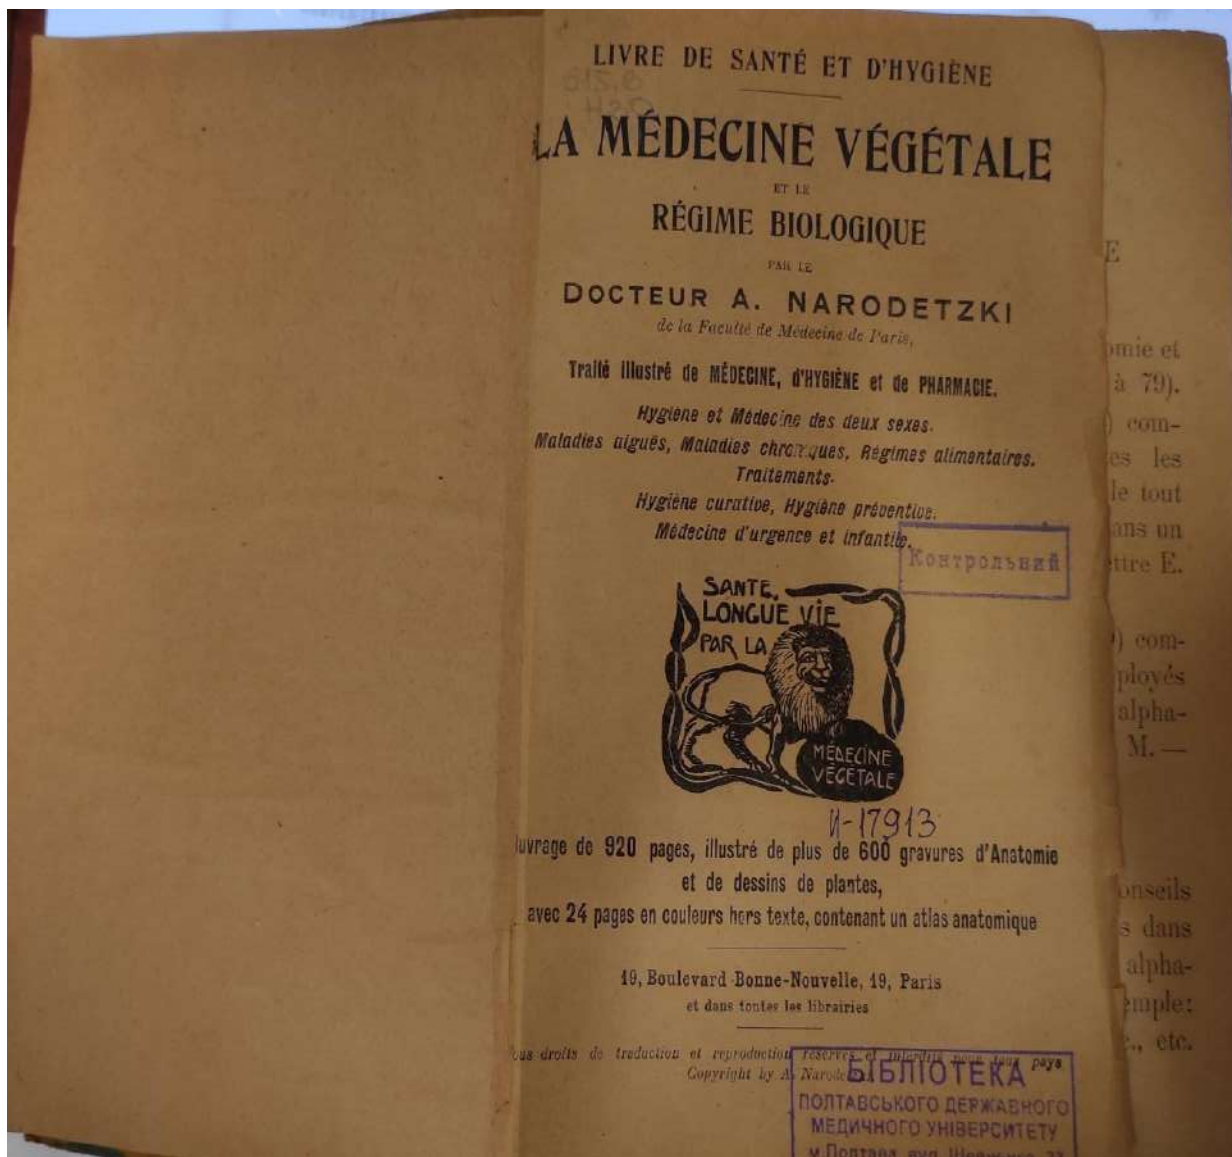 LIVRE DE SANTÉ ET D'HYGIÈNE
615,8
LA MÉDECINE VÉGÉTALE
ET LE
RÉGIME BIOLOGIQUE
PAR LE
DOCTEUR A. NARODETZKI
de la Faculté de Médecine de Paris,
Traité illustré de MÉDECINE, d'HYGIÈNE et de PHARMACIE.
Hygiène et Médecine des deux sexes.
Maladies aiguës, Maladies chroniques, Régimes alimentaires.
Traitements.
Hygiène curative, Hygiène préventive.
Médecine d'urgence et infantile.
Контрольний
SANTE,
LONGUE VIE
PAR LA
MÉDECINE
VÉGÉTALE
И-17913
uvrage de 920 pages, illustré de plus de 600 gravures d'Anatomie
et de dessins de plantes,
avec 24 pages en couleurs hors texte, contenant un atlas anatomique
19, Boulevard Bonne-Nouvelle, 19, Paris
et dans toutes les librairies
ous droits de traduction et reproduction réservés et interdits pour tous pays
Copyright by A. Narodetzki
БІБЛІОТЕКА
ПОЛТАВСЬКОГО ДЕРЖАВНОГО
МЕДИЧНОГО УНІВЕРСИТЕТУ
м.Полтава, вул. Шевченка, 23
E
omie et
à 79).
) com-
es les
le tout
ans un
ettre E.
) com-
ployés
alpha-
M. —
onseils
s dans
alpha-
emple:
., etc.